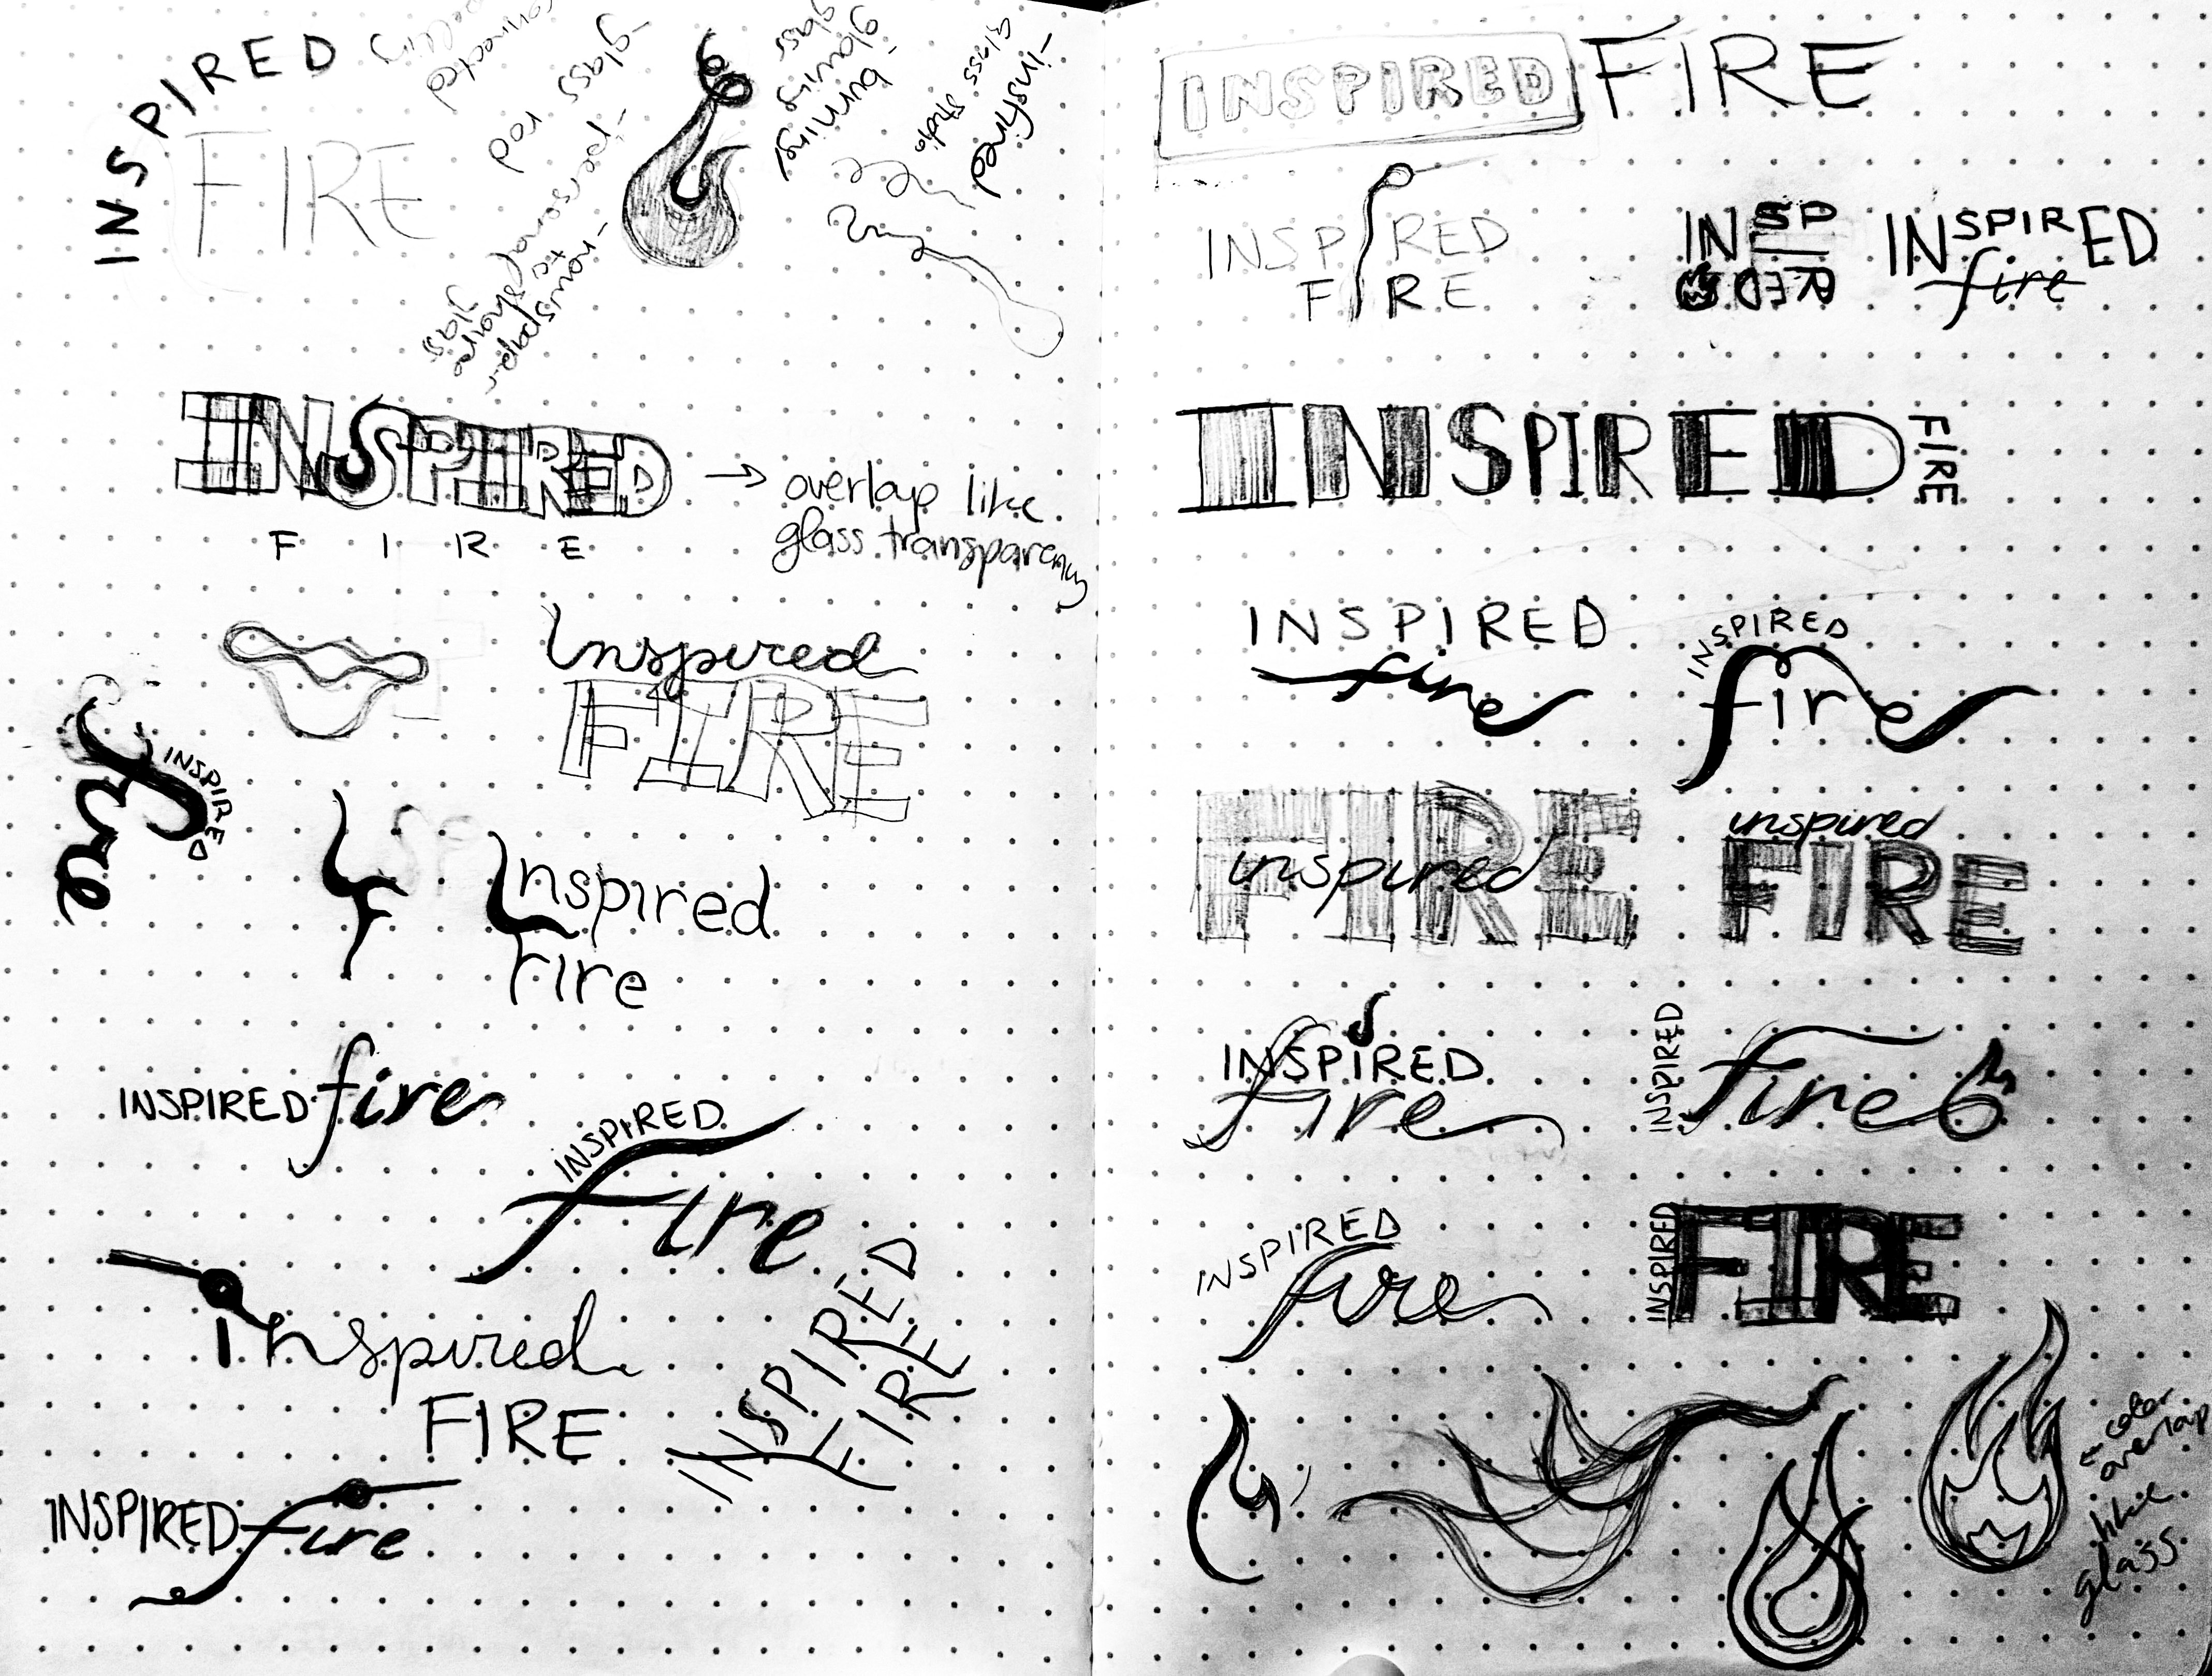 INSPIRED
FIRE
connected
-glass rod
-personal
to
glass
glowing
-burning
-inspired
Glass studio
newspaper
INSPIRED
F I R E
→ overlap like
glass transparency
Inspired
FIRE
INSPIRED
fire
SP
Inspired
fire
INSPIRED fire
INSPIRED
fire
inspired
FIRE
INSPIRED
FIRE
INSPIRED fire
INSPIRED FIRE
INSPIRED
FIRE
INSP
IRED
INSPIRED
fire
INSPIRED FIRE
INSPIRED
fire
INSPIRED
fire
FIRE
inspired
inspired
FIRE
INSPIRED
fire
INSPIRED
fire
INSPIRED
fire
INSPIRED
FIRE
← color
overlap
like
glass